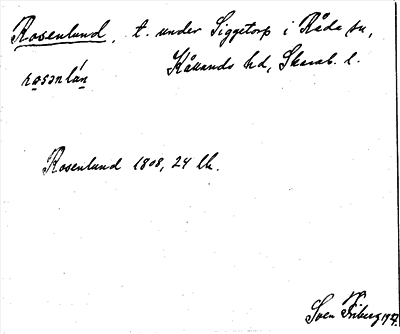 Rosenlund, t. under Siggetorp i Råda sn,
Kållands hd, Skarab. l.
rosənlán
Rosenlund 1808, 24 lh.
Sven Friberg